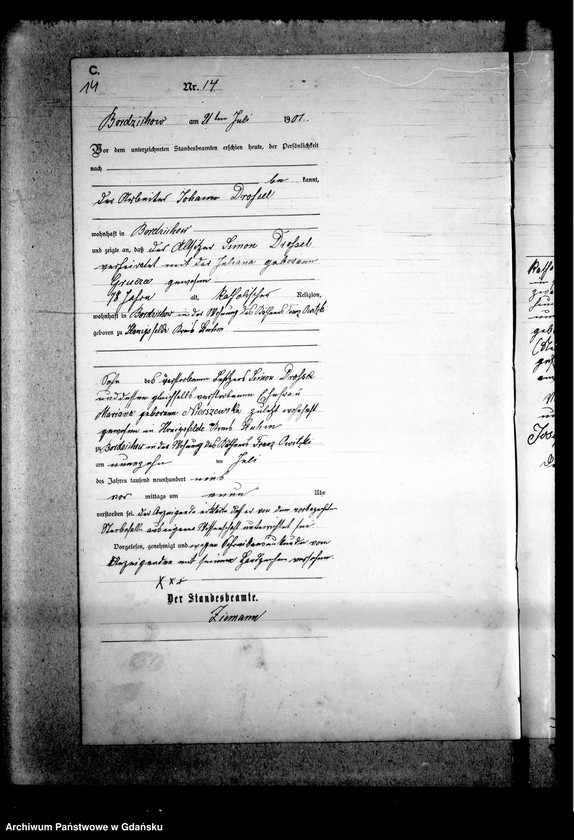 C.
14
Nr. 14.
Bordzichow am 21ten Juli 1901.
Vor dem unterzeichneten Standesbeamten erschien heute, der Persönlichkeit
nach
be kannt,
der Arbeiter Johann Drossel
wohnhaft in Bordzichow
und zeigte an, daß der Altsitzer Simon Drossel
verheiratet mit der Juliana geborenen
gewesen
78 Jahre alt, katholischer Religion,
wohnhaft in Bordzichow in der Wohnung des Franz
geboren zu Königsfelde Kreis
Sohn des verstorbenen Besitzers Simon Drossel
und dessen gleichfalls verstorbenen Ehefrau
Mariane geborenen zuletzt wohnhaft
gewesen in Königsfelde Kreis
zu Bordzichow in der Wohnung des Franz
am neunzehn ten Juli
des Jahres tausend neunhundert eins
vor mittags um neun Uhr
verstorben sei. Der Anzeigende erklärte daß er von dem vorbezeichneten
Sterbefalle aus eigener Wissenschaft unterrichtet sei
Vorgelesen, genehmigt und wegen Schreibensunkunde vom
Anzeigenden mit seinem Handzeichen versehen.
XXX
Der Standesbeamte.
Ziemann
Archiwum Państwowe w Gdańsku